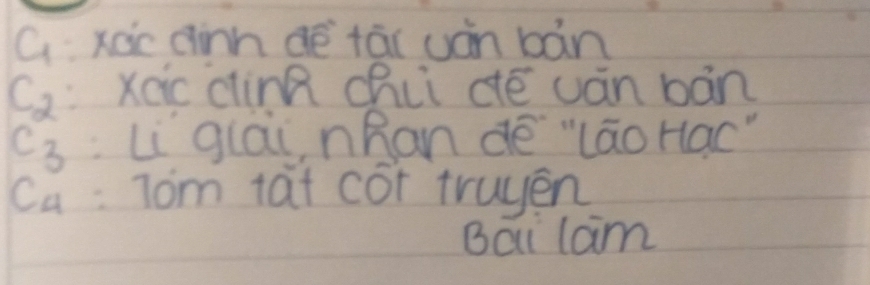 C1: xác định đề tài văn bản
C2: Xác định chủ đề văn bản
C3: Lí giải nhan đề "Lão Hạc"
C4: Tóm tắt cốt truyện
Bài làm